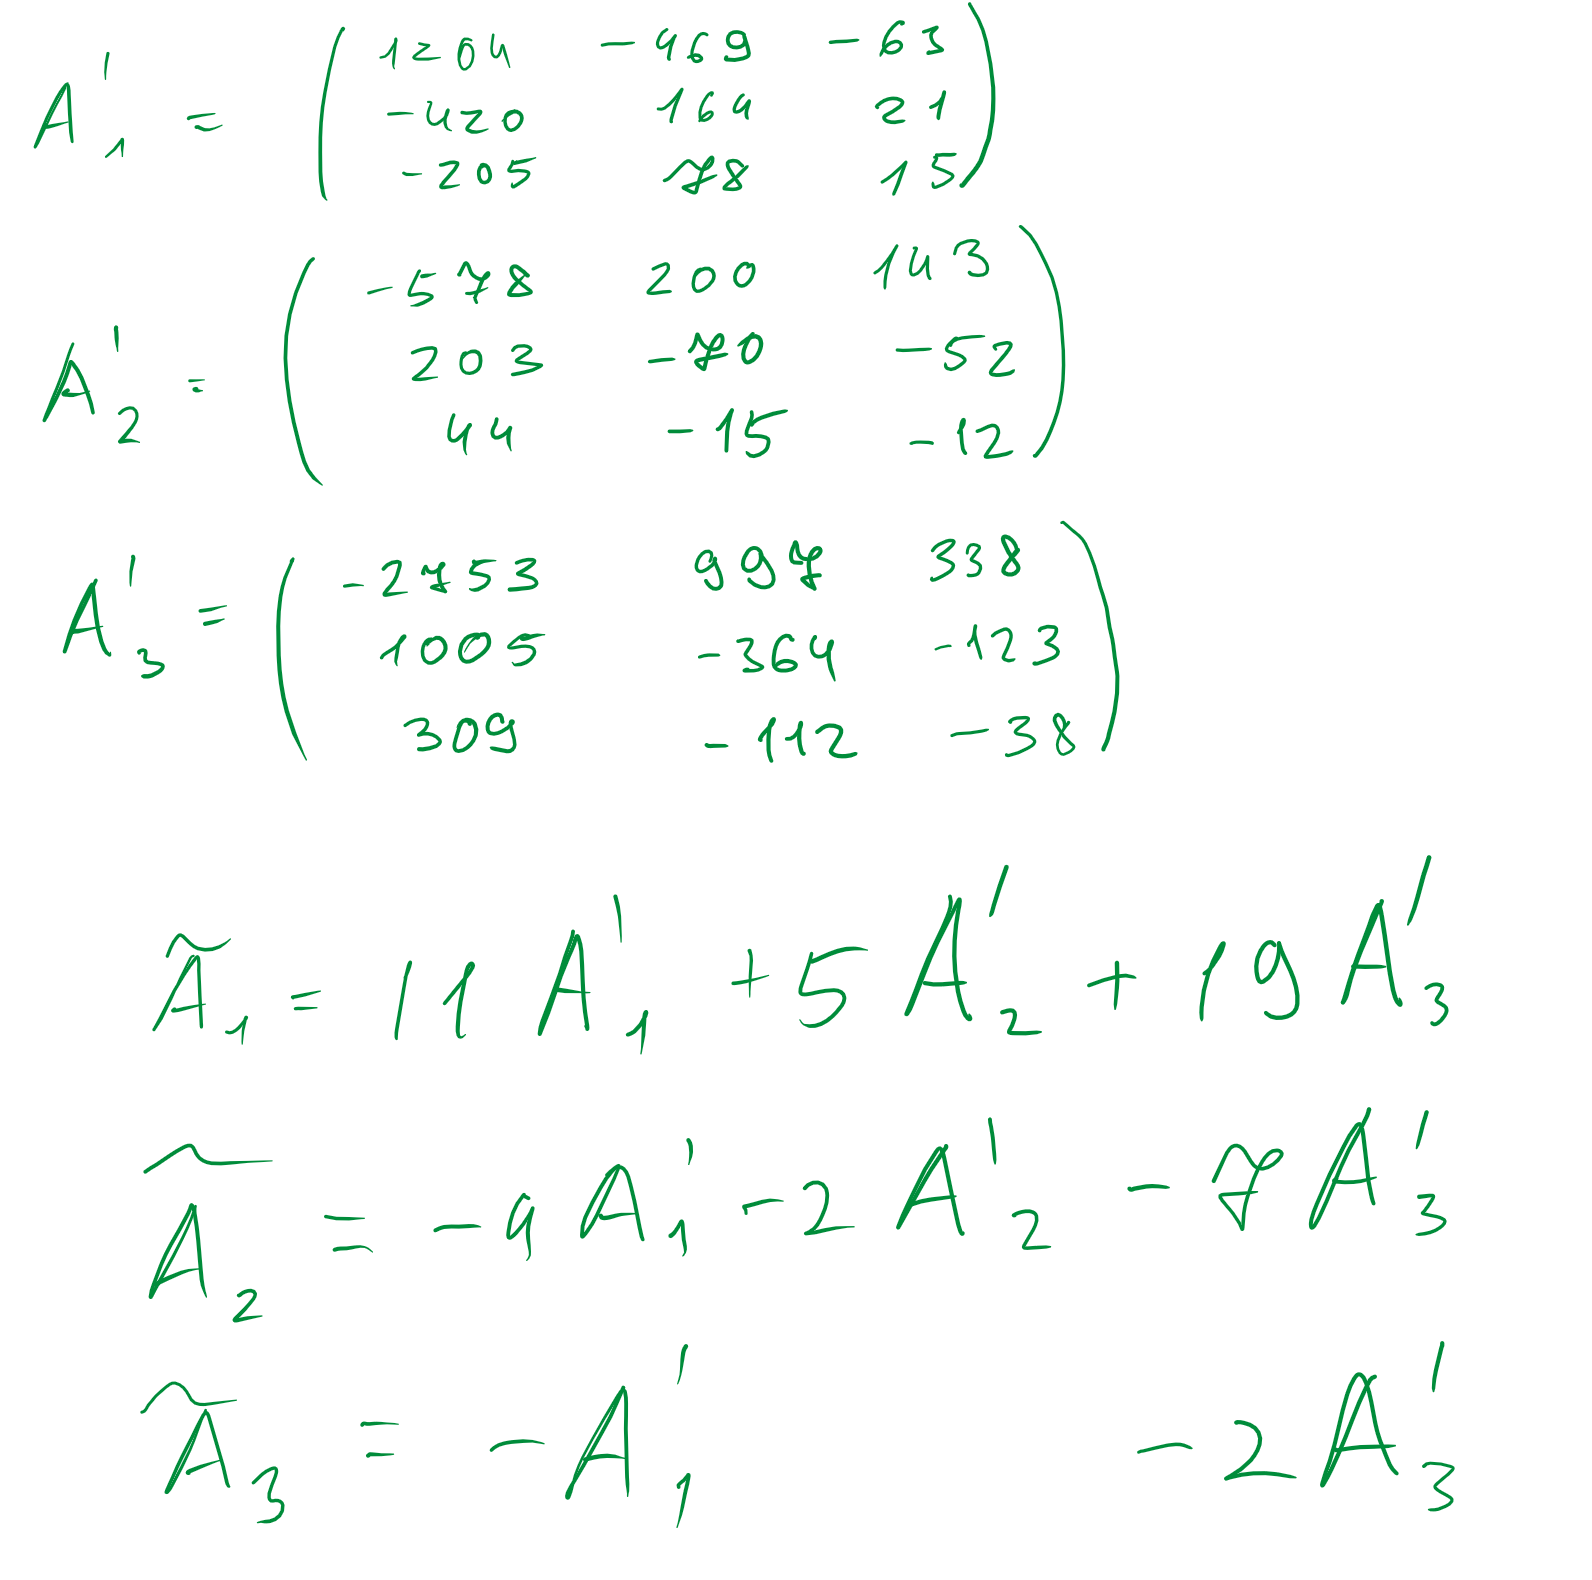 A'₁ = ( 1204 -469 -63
-420 164 21
-205 78 15 )
A'₂ = ( -578 200 143
203 -70 -52
44 -15 -12 )
A'₃ = ( -2753 997 338
1005 -364 -123
309 -112 -38 )
Ã₁ = 11 A'₁ + 5 A'₂ + 19 A'₃
Ã₂ = -4 A'₁ - 2 A'₂ - 7 A'₃
Ã₃ = - A'₁ - 2 A'₃